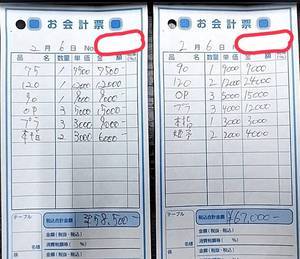 お会計票
2月6日 No.
品名 数量 単価 金額
75 1 7500 7500-
120 1 12000 12000
90 1 9000 9000
OP 3 5000 15000
プラ 3 3000 9000-
本指 2 3000 6000-
テーブル
税込合計金額 ¥58,500-
金額(税抜・税込)
消費税額等
金額(税抜・税込)
名様
お会計票
2月6日 No.
品名 数量 単価 金額
90 1 9000 9000
120 2 12000 24000
OP 3 5000 15000
プラ 3 4000 12000
本指 1 3000 3000
2 2000 4000
テーブル
税込合計金額 ¥67,000-
金額(税抜・税込)
消費税額等
金額(税抜・税込)
名様